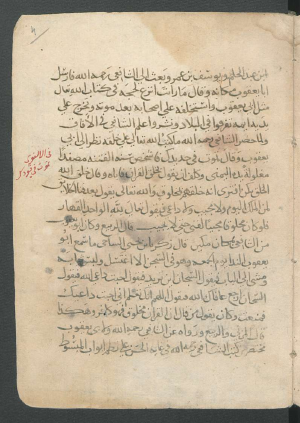 ابن عبد الحكم ويوسف بن عمر وبعث الى الشافعي رحمه الله فارسل
ابا يعقوب مكانه وقال ما رأيت انزع بحجة في كتاب الله تعالى
مثل ابي يعقوب واستخلفه على اصحابه بعد موته وتخرج على
يديه ايمة تفرقوا في البلاد ونشروا علم الشافعي في الآفاق
ولما حضر الشافعي رحمه الله نظر الى ابي
يعقوب وقال تموت في حديدك فاشخص سنة الفتنة مصفدا
مغلولة يده الى عنقه وكان يقول خلق الله
الخلق بكن افترى انه خلقه بمخلوق والله تعالى يقول بعد فناء الخلق
لمن الملك اليوم ولا مجيب ولا داعي فيقول تعالى لله الواحد القهار
فلو كان مخلوقا مجيبا لفني حتى لا يجيب قال الربيع وكان ابو يعقوب
من الشافعي بمكان مكين قال زكريا بن يحيى الساجي ما سمع ابو
يعقوب الاذان يوم الجمعة وهو في السجن الا اغتسل ولبس ثيابه
ومشى الى الباب فيقول السجان اين تريد فيقول اجيب داعي الله فيقول
السجان ارجع عافاك الله فيقول اللهم انك تعلم اني اجبت داعيك
فمنعت وكان يقول من قال ان القرآن مخلوق فهو كافر وهكذا
قال المزني والربيع ورواه عن الشافعي رحمه الله ولابي يعقوب
مختصر كتب الشافعي رحمه الله في غاية الحسن على نظم ابواب المبسوط